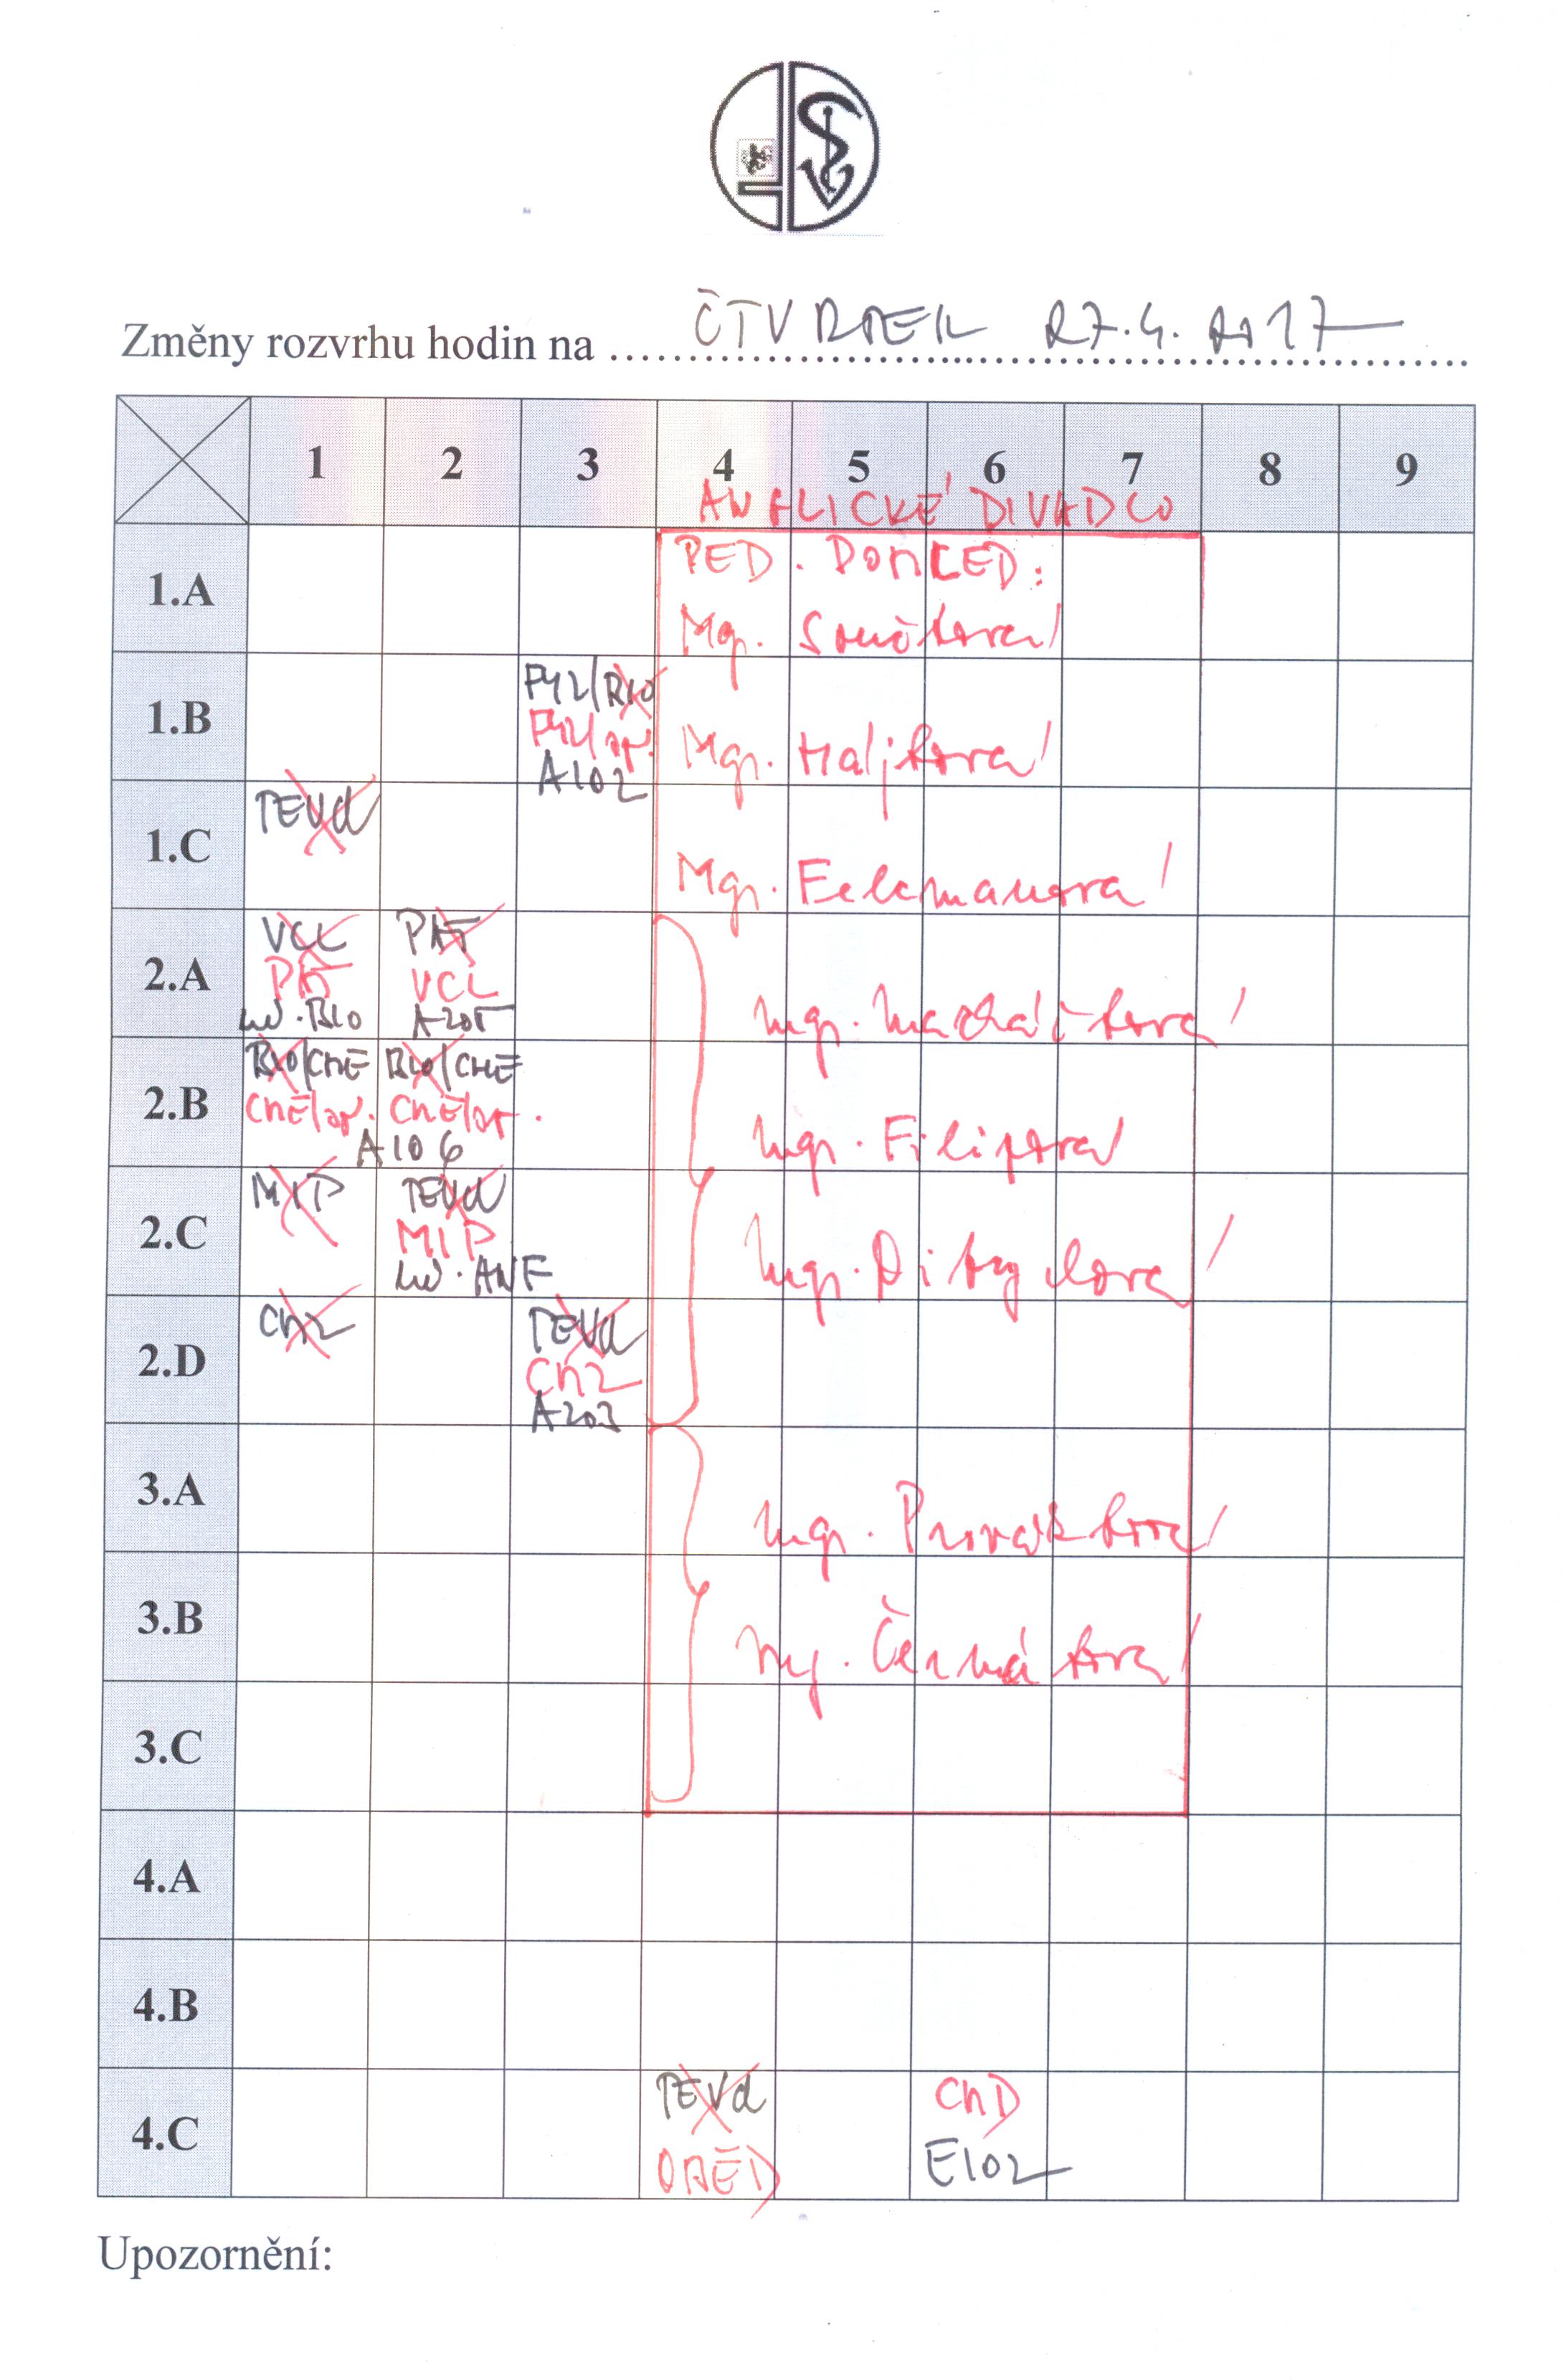 Změny rozvrhu hodin na ČTVRTEK 27.4.2017
1 2 3 4 5 6 7 8 9
ANGLICKÉ DIVADLO
1.A PED. DOHLED:
Mgr. Součková
1.B FYZ/BIO
FYZ/
A102
Mgr. Hájková
1.C TEVd
Mgr. Felcmanová
2.A VCL PAT
PAT VCL
uč. BIO A205
Mgr. Machačková
2.B BIO/CHE BIO/CHE
CHE/ CHE/
A106
Mgr. Filipová
2.C MIP TEVd
MIP
uč. ANF
Mgr.
2.D CHZ TEVd
CHZ
A203
3.A Mgr.
3.B Ing. Čermáková
3.C
4.A
4.B
4.C TEVd ChD
OBĚD E102
Upozornění: